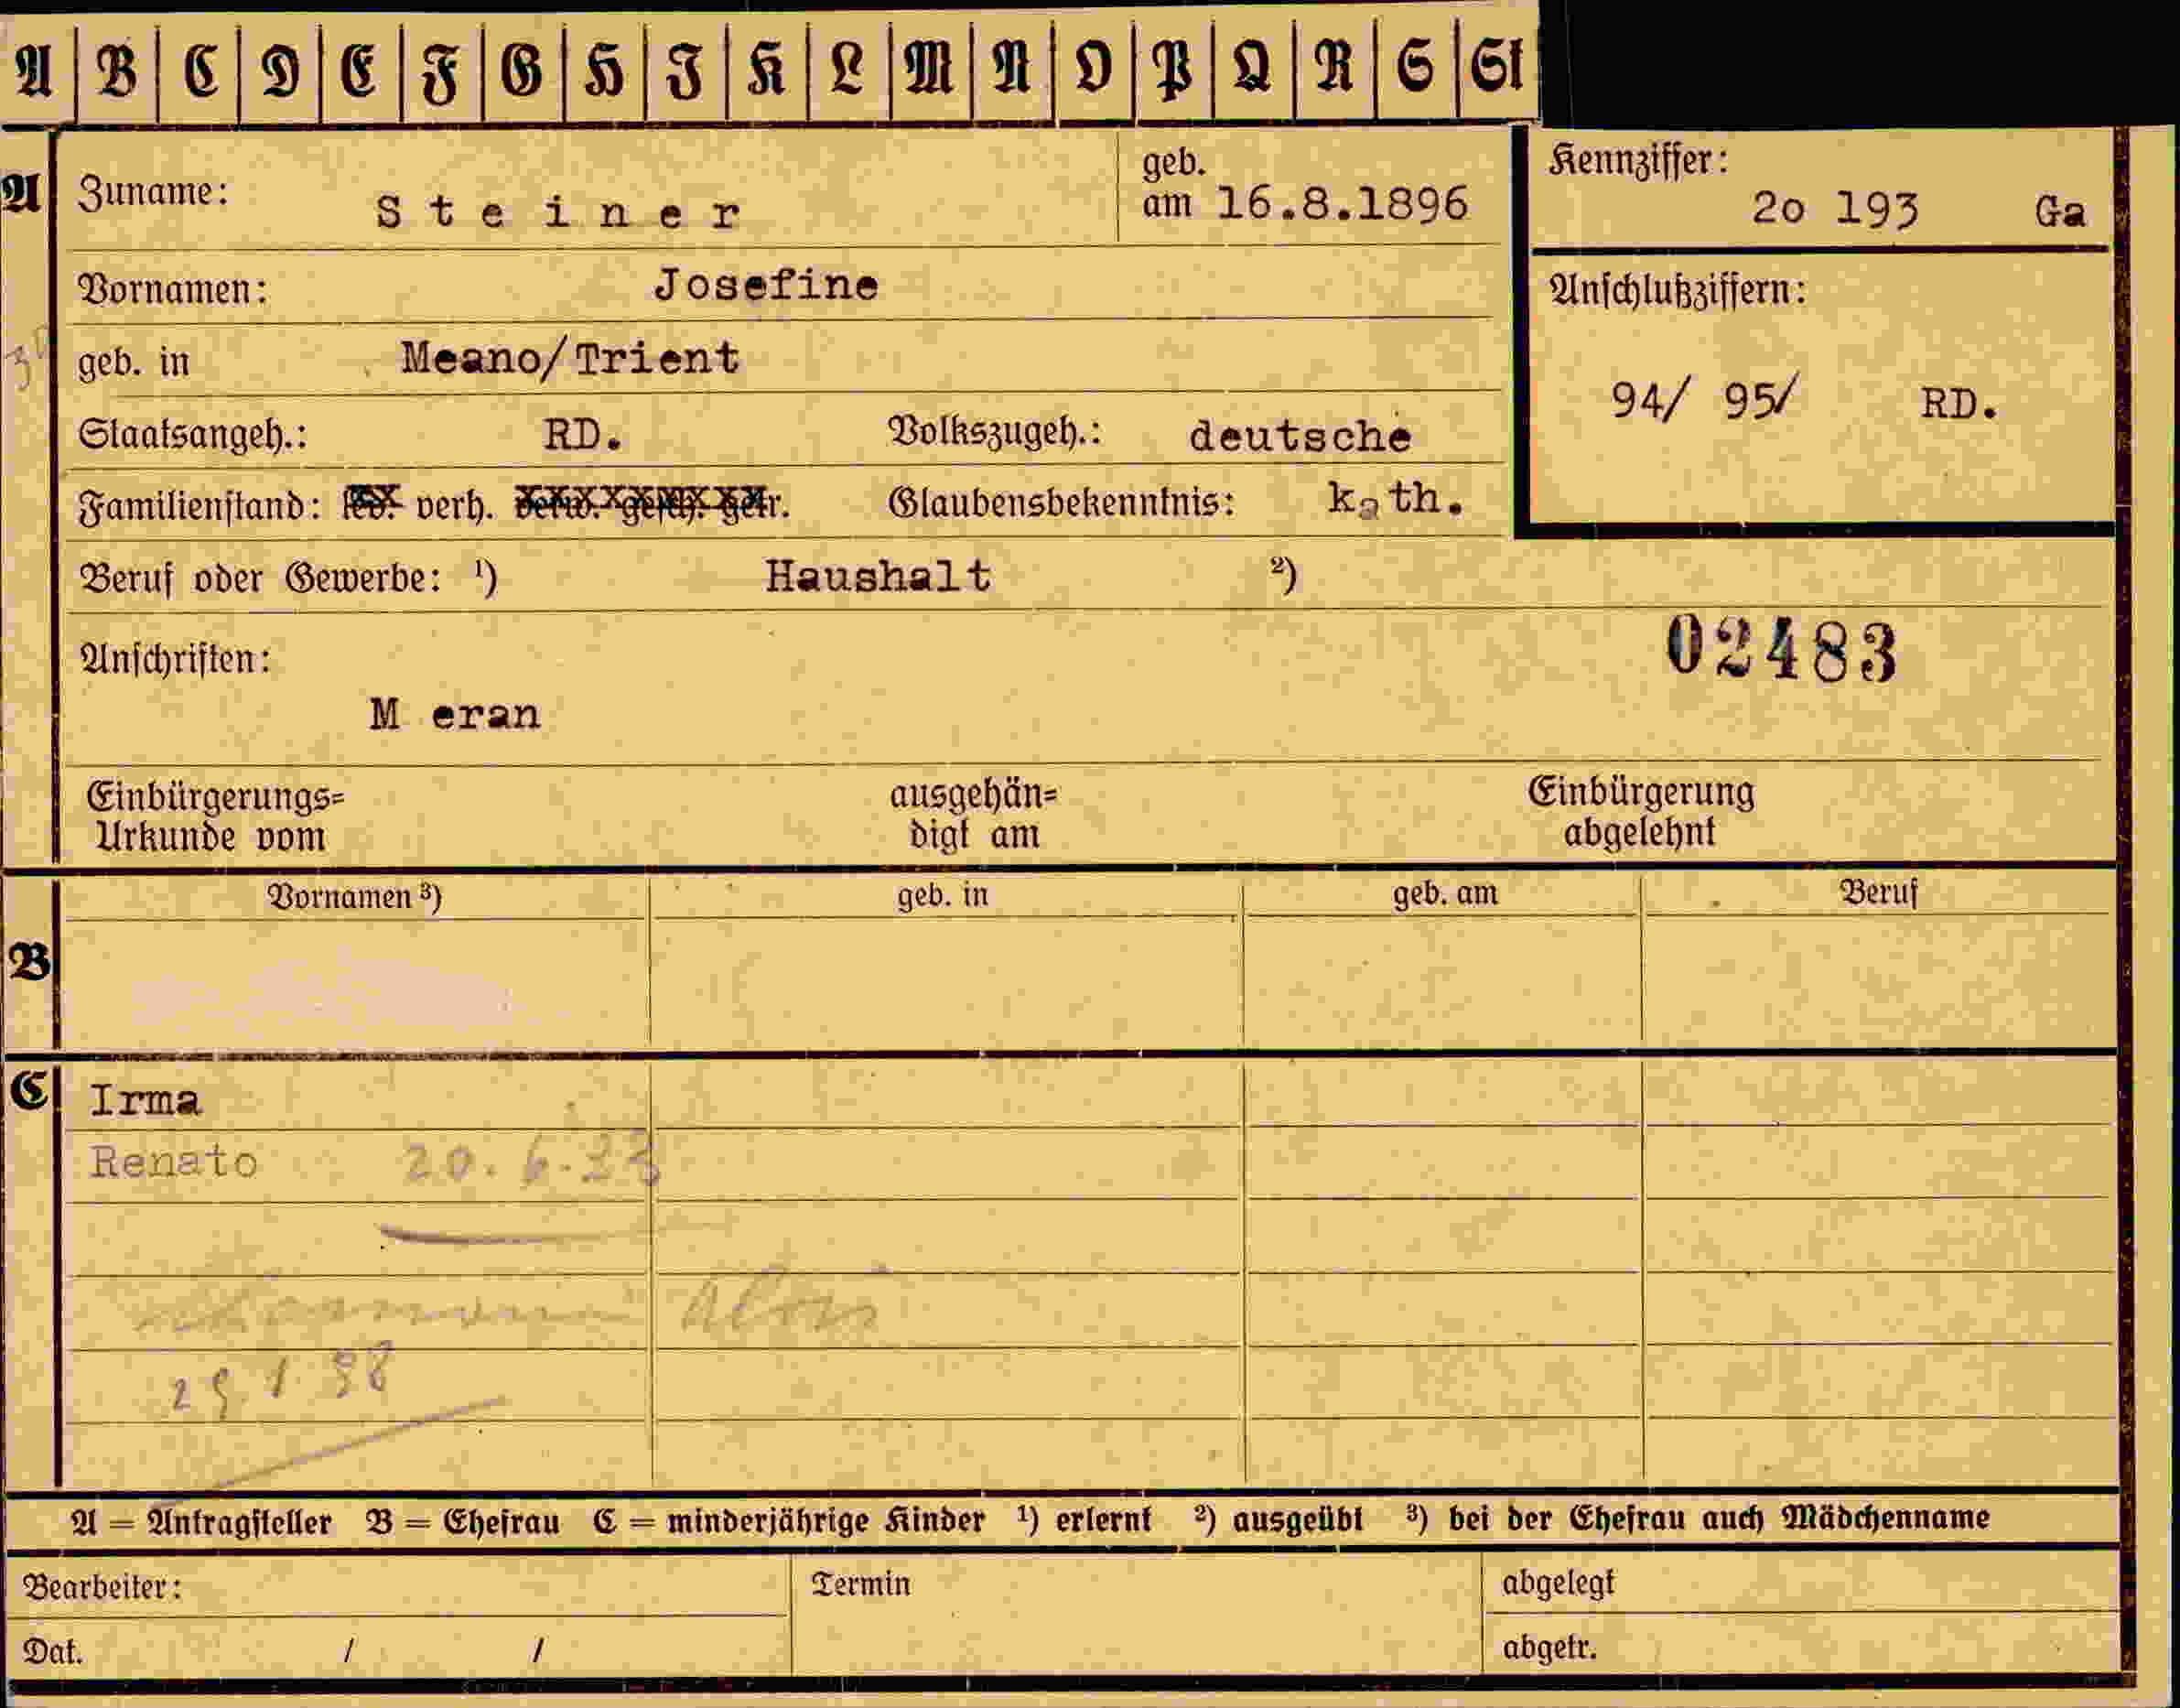 A B C D E F G H I K L M N O P Q R S St
A Zuname: Steiner geb. am 16.8.1896
Kennziffer: 2o 193 Ga
Vornamen: Josefine
Anschlußziffern:
geb. in Meano/Trient
94/ 95/ RD.
Staatsangeh.: RD. Volkszugeh.: deutsche
Familienstand: led. verh. verw. gesch. getr. Glaubensbekenntnis: kath.
Beruf oder Gewerbe: ¹) Haushalt ²)
02483
Anschriften:
M eran
Einbürgerungs= ausgehän= Einbürgerung
Urkunde vom digt am abgelehnt
Vornamen ³) geb. in geb. am Beruf
B
C Irma
Renato 20.6.23
Alois
A = Antragsteller B = Ehefrau C = minderjährige Kinder ¹) erlernt ²) ausgeübt ³) bei der Ehefrau auch Mädchenname
Bearbeiter: Termin abgelegt
Dat. / / abgetr.